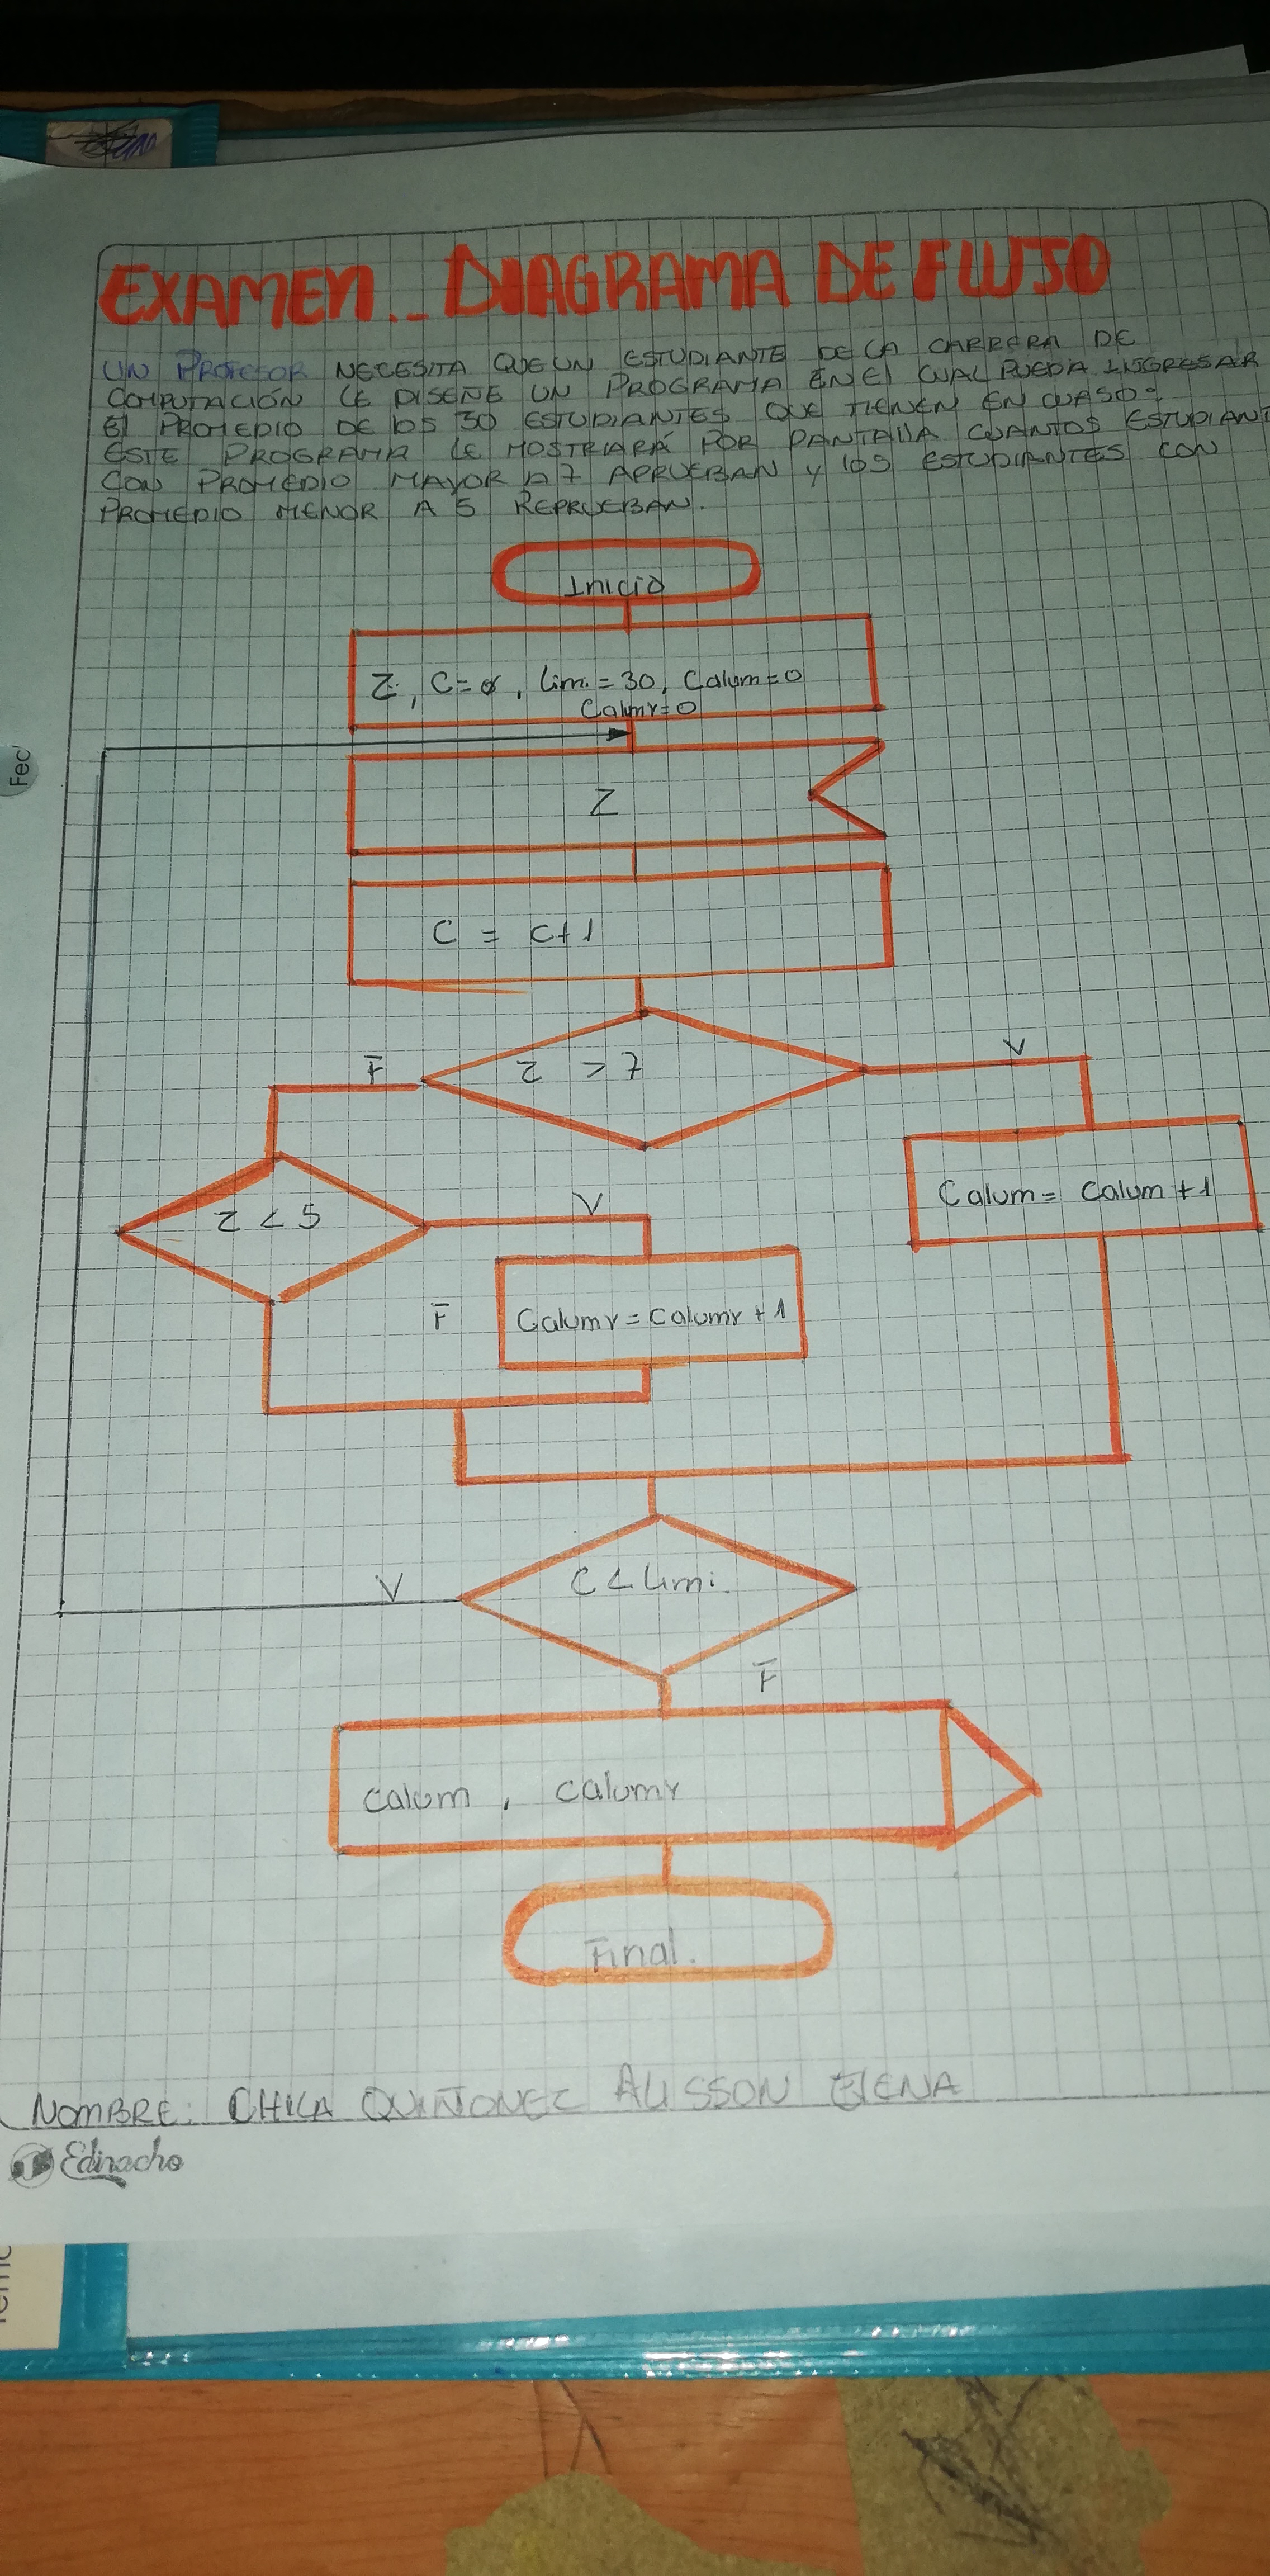 EXAMEN._ DIAGRAMA DE FLUJO
UN PROFESOR NECESITA QUE UN ESTUDIANTE DE LA CARRERA DE
COMPUTACIÓN LE DISEÑE UN PROGRAMA EN EL CUAL PUEDA INGRESAR
El PROMEDIO DE LOS 30 ESTUDIANTES QUE TIENEN EN CURSO;
ESTE PROGRAMA LE MOSTRIARÁ POR PANTALLA CUANTOS ESTUDIANT
CON PROMEDIO MAYOR A 7 APRUEBAN y LOS ESTUDIANTES CON
PROMEDIO MENOR A 5 REPRUEBAN.
Inicio
Z, C=0, Limi=30, Calum=0
Calumr=0
Fec
Z
C = C+1
F
Z > 7
V
Z < 5
V
Calum = Calum+1
F
Calumr = Calumr + 1
V
C < Limi.
F
Calum, Calumr
Final.
NOMBRE: CHILA QUIÑONEZ ALISSON ELENA
Edinacho